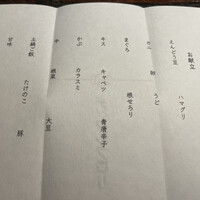 お献立
えんどう豆 ハマグリ
カニ 卵 うど
まぐろ 根せろり
キス キャベツ 青唐辛子
かぶ カラスミ
牛 大豆
土鍋ご飯 たけのこ
甘味